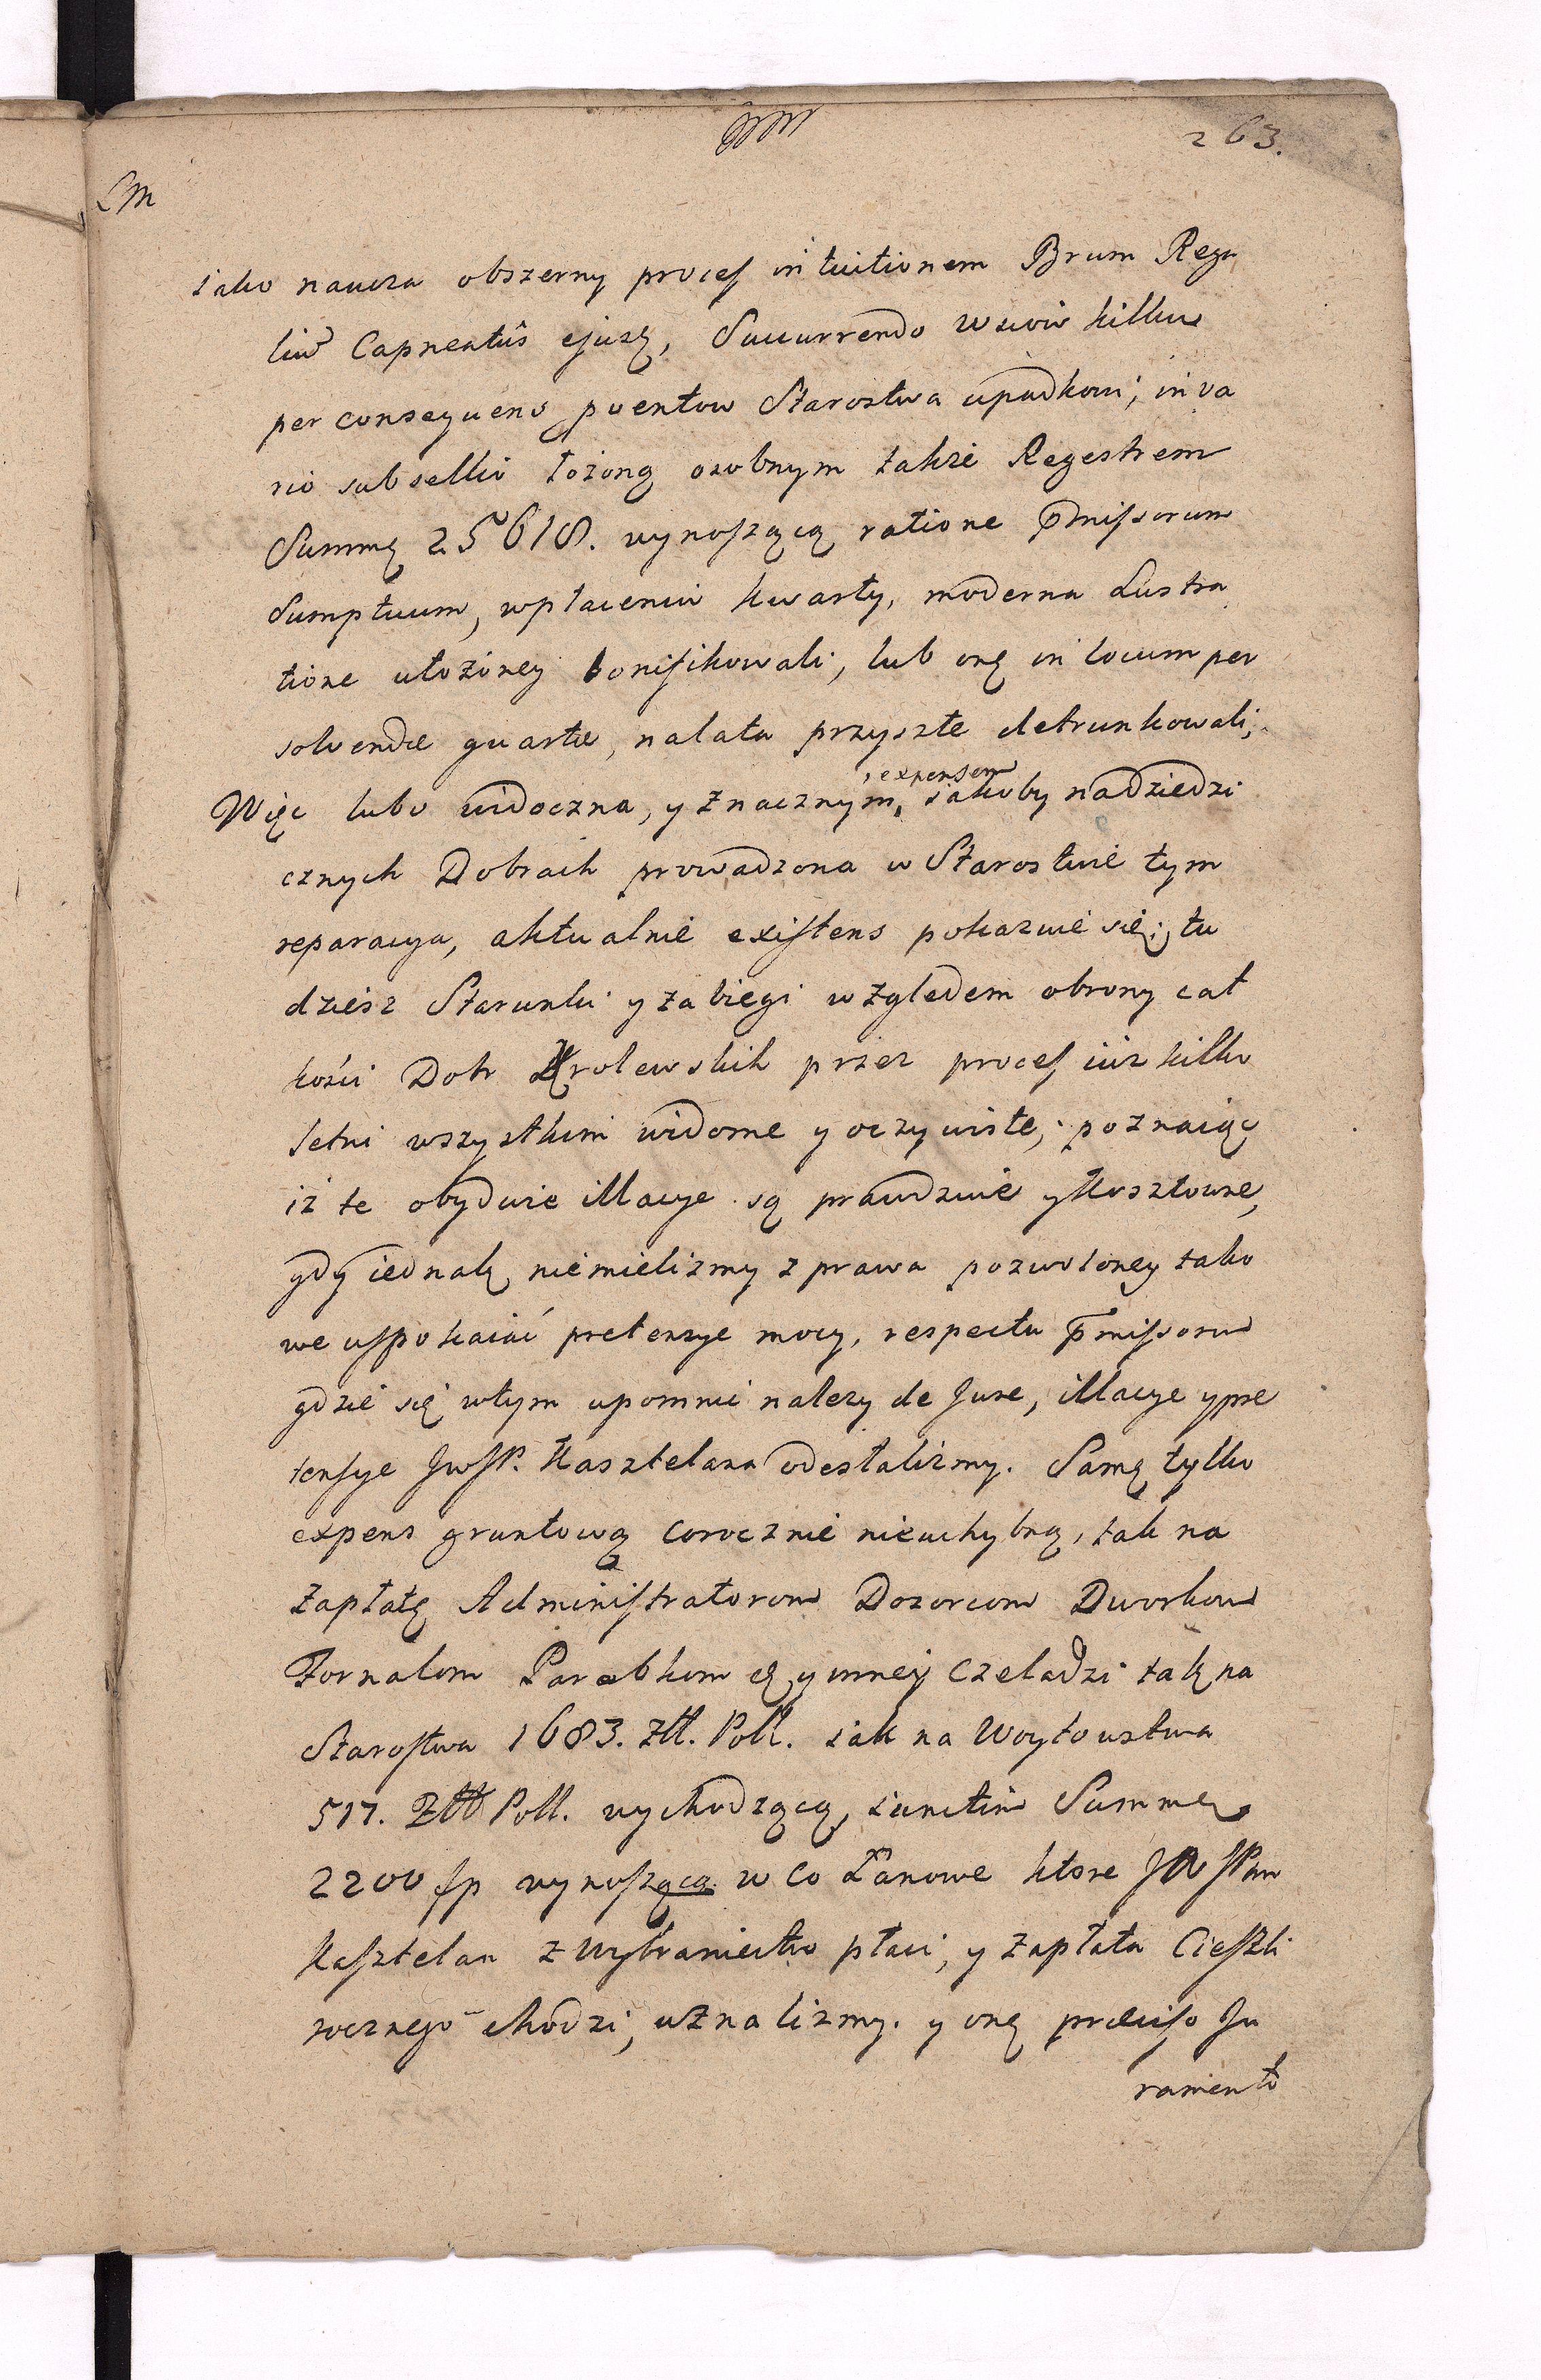 263.
iako naucza obszerny proces in tuitionem Brum Rega
liu Capneatûs ejusq, Succurrendo wswoiw kilku
per consequens puentow Starostwa upadkowi, in va
rio subsellio łożoną osobnym także Regestrem
Summę 25618. wynoszącą ratione pmissorum
Sumptuum, wpłaceniu kwarty, moderna Lustra
tione ułożoney bonifikowali, lub onę in locum per
solvendæ quartæ, nalata przyszłe detrunkowali,
Więc lubo widoczna, y znacznym, expensem iakoby nadziedzi
cznych Dobrach prowadzona w Starostwie tym
reparacya, aktualnie existens pokazuie się; tu
dziesz Starunki y zabiegi względem obrony cał
kości Dobr Krolewskich przez proces iuz kilko
letni wszystkim widome y oczywiste, poznaiąc
iż te obydwie illacye są prawdziwe y kosztowne,
gdy iednak niemielizmy z prawa pozwoloney tako
we uspokaiać pretensye mocy, respectu pmissoru
gdzie się wtym upomnie nalezy de Jure, illacye y pre
tensye JwJP. Kasztelana odesłalizmy. Samę tylko
expens gruntową corocznie nieuchybną, tak na
Zapłatę Administratorom Dozorcom Dworkom
Fornalom Parobkom y inney Czeladzi tak na
Starostwa 1683. Złł. Poll. iak na Woytowstwa
517. Złł Poll. wychodzącą, iunctim Summę
2200 fp wynoszącą w co Łanowe ktore JW JPan
Kasztelan z Wybraniectw płaci, y Zapłata Cieszli
rocznego chodzi, uznalizmy. y onę præciso Ju
ramento